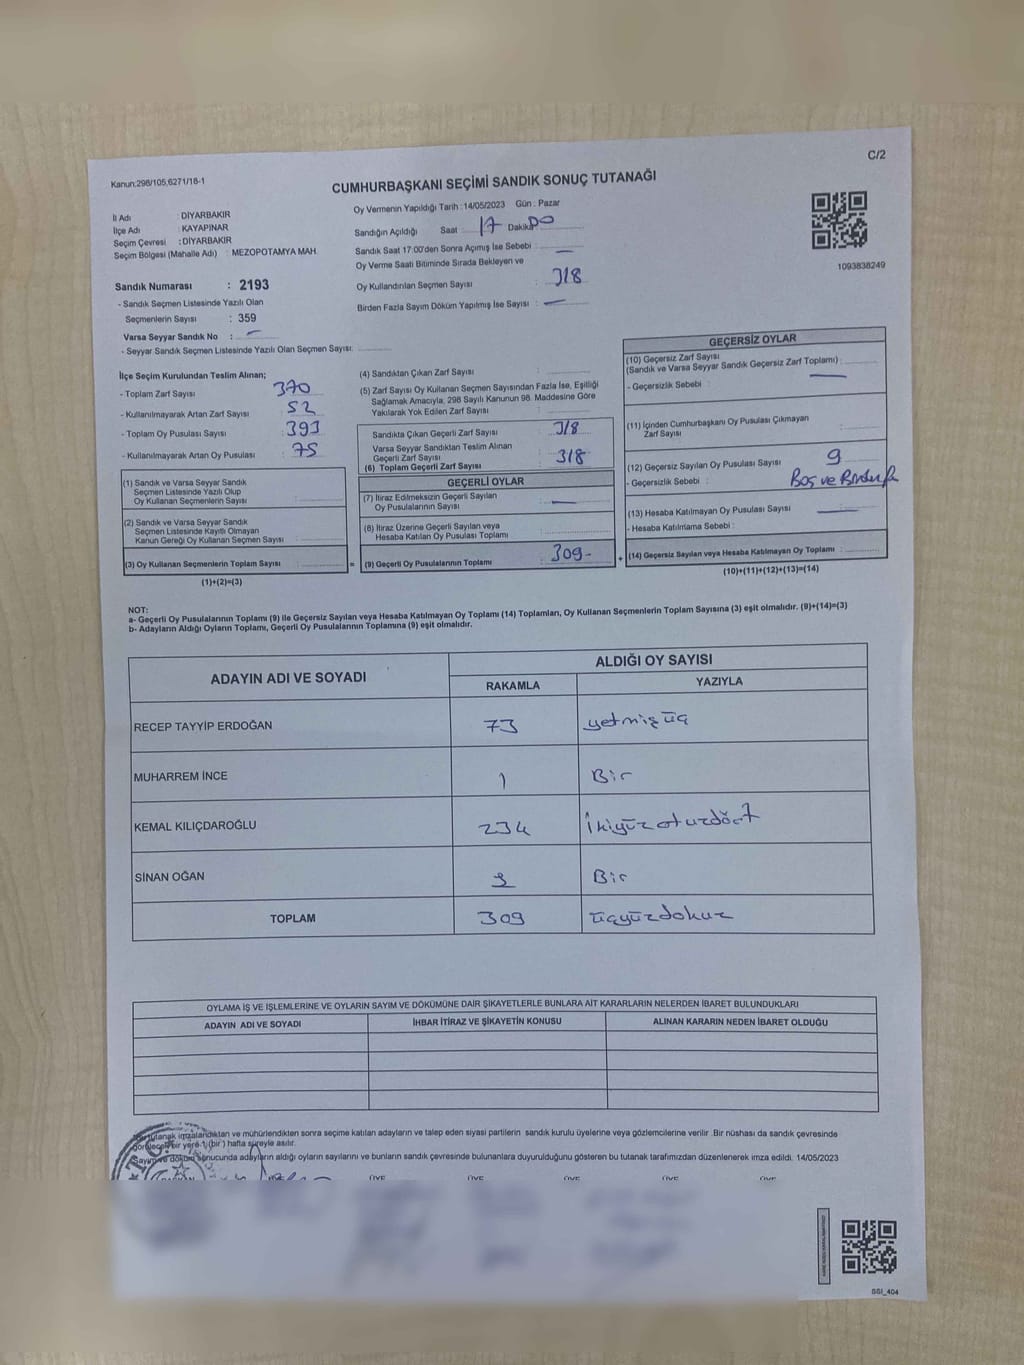 C/2
Kanun:298/105,6271/16-1
CUMHURBAŞKANI SEÇİMİ SANDIK SONUÇ TUTANAĞI
İl Adı : DİYARBAKIR
İlçe Adı : KAYAPINAR
Seçim Çevresi : DİYARBAKIR
Seçim Bölgesi (Mahalle Adı) : MEZOPOTAMYA MAH.
Sandık Numarası : 2193
- Sandık Seçmen Listesinde Yazılı Olan
Seçmenlerin Sayısı : 359
Varsa Seyyar Sandık No : –
- Seyyar Sandık Seçmen Listesinde Yazılı Olan Seçmen Sayısı:
Oy Vermenin Yapıldığı Tarih :14/05/2023 Gün : Pazar
Sandığın Açıldığı Saat 17 Dakika 00
Sandık Saat 17:00'den Sonra Açımış İse Sebebi : –
Oy Verme Saati Bitiminde Sırada Bekleyen ve
Oy Kullandırılan Seçmen Sayısı : 318
Birden Fazla Sayım Döküm Yapılmış İse Sayısı : –
1093838249
İlçe Seçim Kurulundan Teslim Alınan;
- Toplam Zarf Sayısı : 370
- Kullanılmayarak Artan Zarf Sayısı : 52
- Toplam Oy Pusulası Sayısı : 393
- Kullanılmayarak Artan Oy Pusulası : 75
(1) Sandık ve Varsa Seyyar Sandık
Seçmen Listesinde Yazılı Olup
Oy Kullanan Seçmenlerin Sayısı :
(2) Sandık ve Varsa Seyyar Sandık
Seçmen Listesinde Kayıtlı Olmayan
Kanun Gereği Oy Kullanan Seçmen Sayısı :
(3) Oy Kullanan Seçmenlerin Toplam Sayısı :
(1)+(2)=(3)
(4) Sandıktan Çıkan Zarf Sayısı :
(5) Zarf Sayısı Oy Kullanan Seçmen Sayısından Fazla İse, Eşitliği
Sağlamak Amacıyla, 298 Sayılı Kanunun 98. Maddesine Göre
Yakılarak Yok Edilen Zarf Sayısı :
Sandıkta Çıkan Geçerli Zarf Sayısı : 318
Varsa Seyyar Sandıktan Teslim Alınan
Geçerli Zarf Sayısı :
(6) Toplam Geçerli Zarf Sayısı : 318
GEÇERLİ OYLAR
(7) İtiraz Edilmeksizin Geçerli Sayılan
Oy Pusulasının Sayısı : –
(8) İtiraz Üzerine Geçerli Sayılan veya
Hesaba Katılan Oy Pusulası Toplamı :
= (9) Geçerli Oy Pusulalarının Toplamı : 309-
GEÇERSİZ OYLAR
(10) Geçersiz Zarf Sayısı
(Sandık ve Varsa Seyyar Sandık Geçersiz Zarf Toplamı) : –
- Geçersizlik Sebebi :
(11) İçinden Cumhurbaşkanı Oy Pusulası Çıkmayan
Zarf Sayısı :
(12) Geçersiz Sayılan Oy Pusulası Sayısı : 9
- Geçersizlik Sebebi : Boş ve
(13) Hesaba Katılmayan Oy Pusulası Sayısı : –
- Hesaba Katılmama Sebebi :
+ (14) Geçersiz Sayılan veya Hesaba Katılmayan Oy Toplamı :
(10)+(11)+(12)+(13)=(14)
NOT:
a- Geçerli Oy Pusulalarının Toplamı (9) ile Geçersiz Sayılan veya Hesaba Katılmayan Oy Toplamı (14) Toplamları, Oy Kullanan Seçmenlerin Toplam Sayısına (3) eşit olmalıdır. (9)+(14)=(3)
b- Adayların Aldığı Oyların Toplamı, Geçerli Oy Pusulalarının Toplamına (9) eşit olmalıdır.
ADAYIN ADI VE SOYADI ALDIĞI OY SAYISI
RAKAMLA YAZIYLA
RECEP TAYYİP ERDOĞAN 73 yetmişüç
MUHARREM İNCE 1 Bir
KEMAL KILIÇDAROĞLU 234 ikiyüzotuzdört
SİNAN OĞAN Bir
TOPLAM 309 üçyüzdokuz
OYLAMA İŞ VE İŞLEMLERİNE VE OYLARIN SAYIM VE DÖKÜMÜNE DAİR ŞİKAYETLERLE BUNLARA AİT KARARLARIN NELERDEN İBARET BULUNDUKLARI
ADAYIN ADI VE SOYADI İHBAR İTİRAZ VE ŞİKAYETİN KONUSU ALINAN KARARIN NEDEN İBARET OLDUĞU
tutanak imzalandıktan ve mühürlendikten sonra seçime katılan adayların ve talep eden siyasi partilerin sandık kurulu üyelerine veya gözlemcilerine verilir .Bir nüshası da sandık çevresinde
görülecek bir yere 1 (bir ) hafta süreyle asılır.
Sayım ve döküm sonucunda adayların aldığı oyların sayılarını ve bunların sandık çevresinde bulunanlara duyurulduğunu gösteren bu tutanak tarafımızdan düzenlenerek imza edildi. 14/05/2023
ÜYE ÜYE ÜYE ÜYE ÜYE
SSI_404